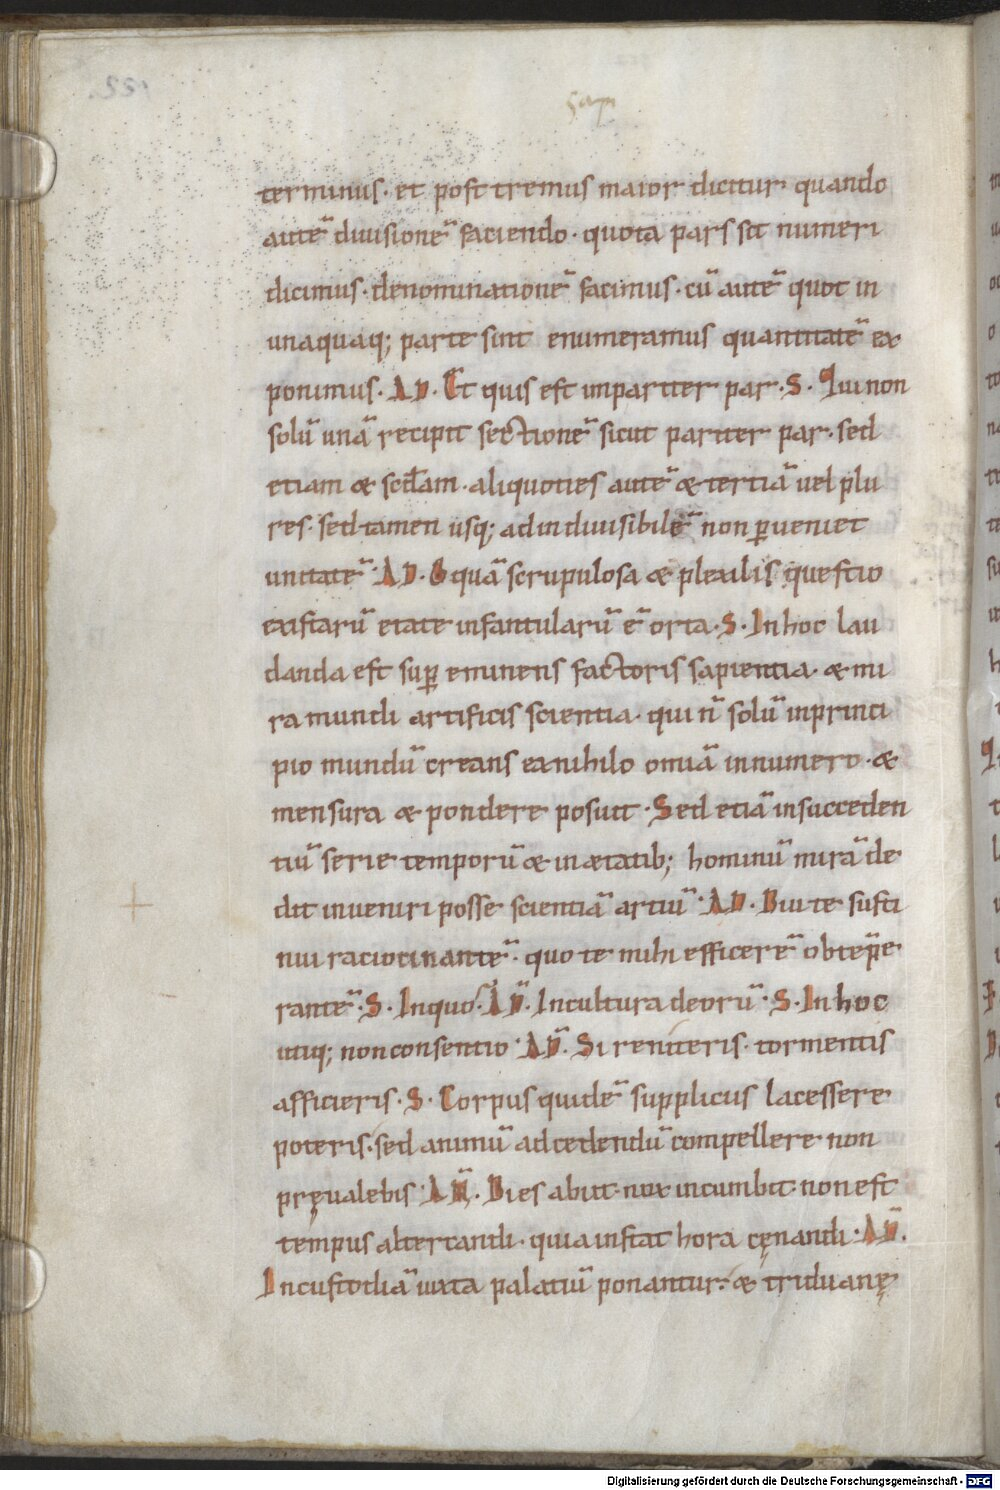 sap
terminus· et postremus maior dicitur quando
autē diuisionē faciendo· quota pars sit numeri
dicimus· denominationē facimus· cū autē quot in
unaquaq; parte sint enumeramus quantitatē ex
ponimus· AD· Et quis est inpariter par· S· Qui non
solū unā recipit sectionē sicut pariter par· sed
etiam & scđam· aliquoties autē & tertiā uel plu
res· sed tamen usq; ad indiuisibilē non ꝑueniet
unitatē· AD· O quā scrupulosa & plexilis questio
ex istarū etate infantularū ē orta· S· In hoc lau
danda est suꝑeminens factoris sapientia· & mi
ra mundi artificis scientia· qui n̄ solū in princi
pio mundū creans ex nihilo omīa in numero· &
mensura & pondere posuit· Sed etiā in succeden
tiū serie temporū & in ætatib; hominū mirā de
dit inueniri posse scientiā artiū· AD· Diu te susti
nui raciocinantē· quo te mihi efficerē obtēpe
rantē· S· In quo· AD̄· In cultura deorū· S· In hoc
utiq; non consentio· AD̄· Si reniteris· tormentis
afficieris· S· Corpus quidē suppliciis lacessere
poteris· sed animū ad cedendū compellere non
pręualebis· AN̄· Dies abiit· nox incumbit· non est
tempus altercandi· quia instat hora cęnandi· AD̄·
In custodiā iuxta palatiū ponantur· & triduanę
Digitalisierung gefördert durch die Deutsche Forschungsgemeinschaft - DFG